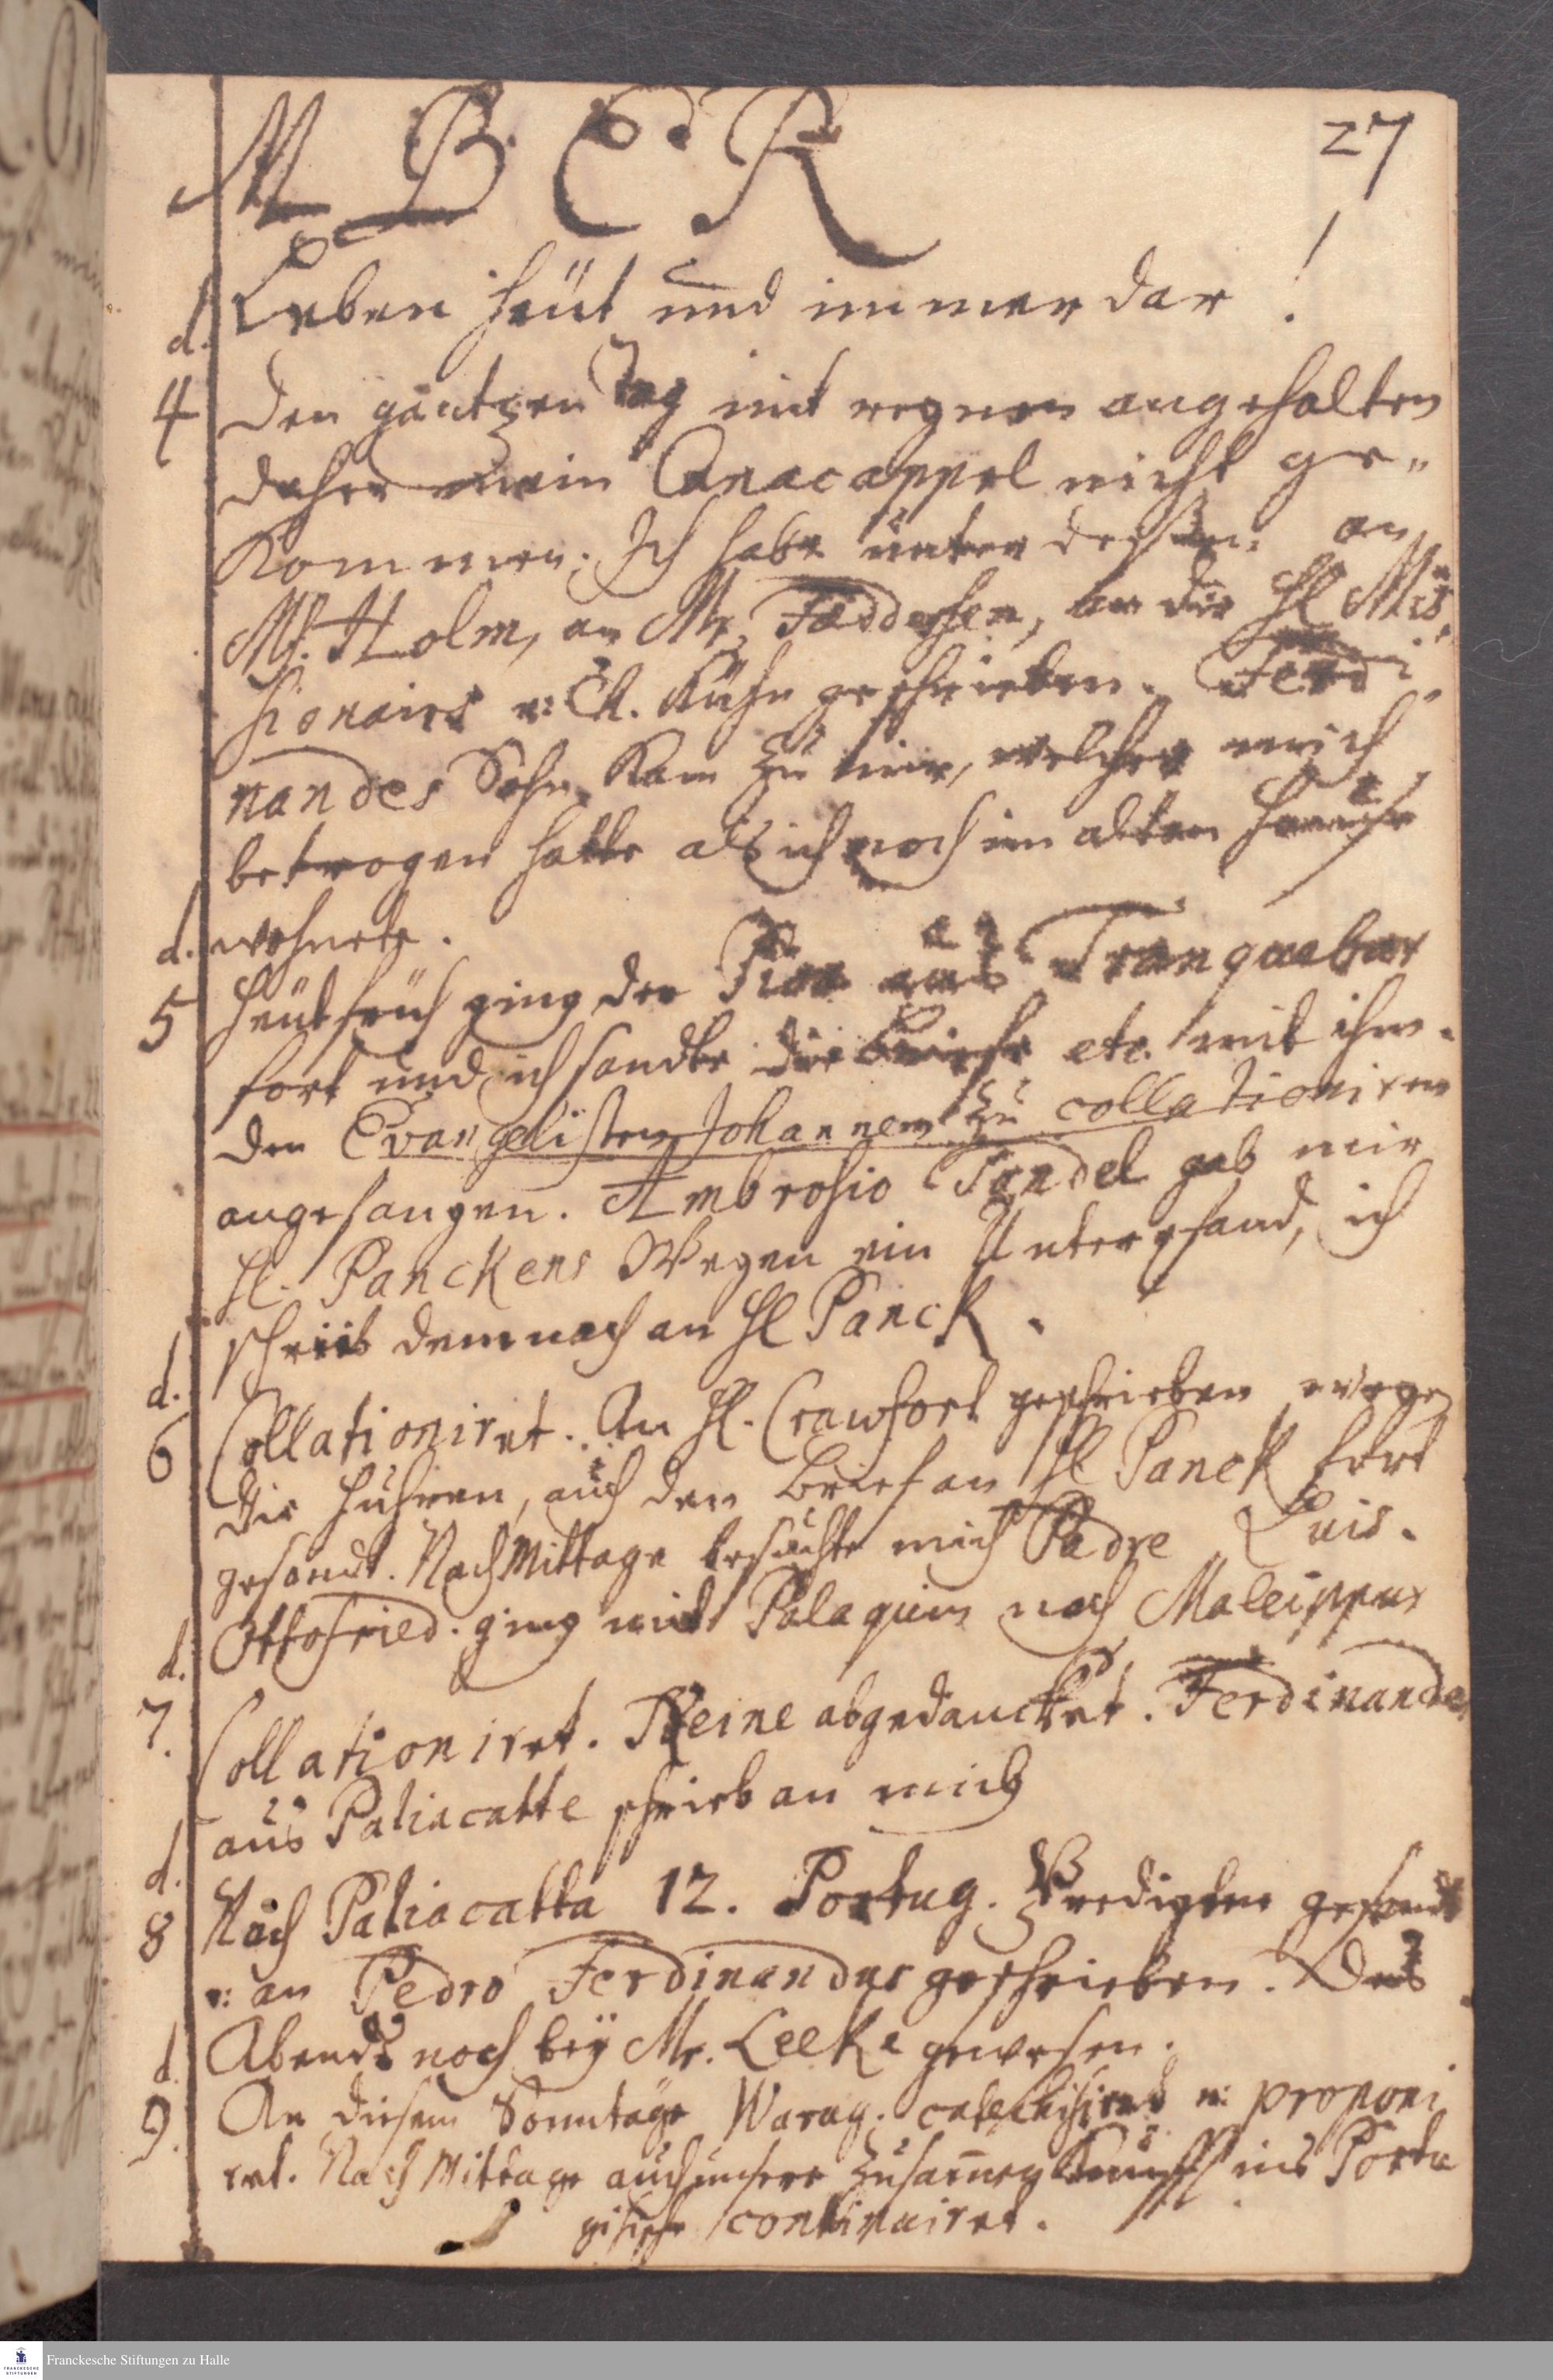 M B E R
27
Leben heüt und immerdar!
d.
4 Den gantzen Tag mit regnen angehalten
daher mein Canacappel nicht ge-
kommen. Ich habe unterdessen an
Mr. Holm, an Mr. Fæddersen, an die Hl Mis-
sionairs u: Ch. Kühn geschrieben. Ferdi-
nandes Sohn kam zu mir, welcher mich
betrogen hatte als ich noch im alten Hause
d. wohnete.
5 Heüt früh ging der Pion aus Tranquebar
fort und ich sandte die Briefe etc. mit ihm.
den Evangelisten Johannem zu collationiren
angefangen. Ambrosio Tandel gab mir
Hl. Panckens Wegen ein Unterpfand, ich
schrieb demnach an Hl Panck.
d.
6 Collationiret. An Hl. Crawfort geschrieben wegen
die Huhren, auch den Brief an Hl Panck fort
gesandt. NachMittage besuchte mich Padre Luis.
d. Ottofried. ging mit Palaquin nach Maleippur
7. Collationiret. Reine abgedancket. Ferdinandes
aus Paliacatte schrieb an mich
d.
8 Nach Paliacatta 12. Portug. Predigten gesandt
u: an Pedro Ferdinandus geschrieben. Des
d Abends noch bey Mr. Leeke gewesen.
9. An diesem Sonntage Warug. catechisiret u: proponi
ret. NachMittage auch unsere Zusammenkunfft ins Portu
gisische continuiret.
Franckesche Stiftungen zu Halle
FRANCKESCHE
STIFTUNGEN